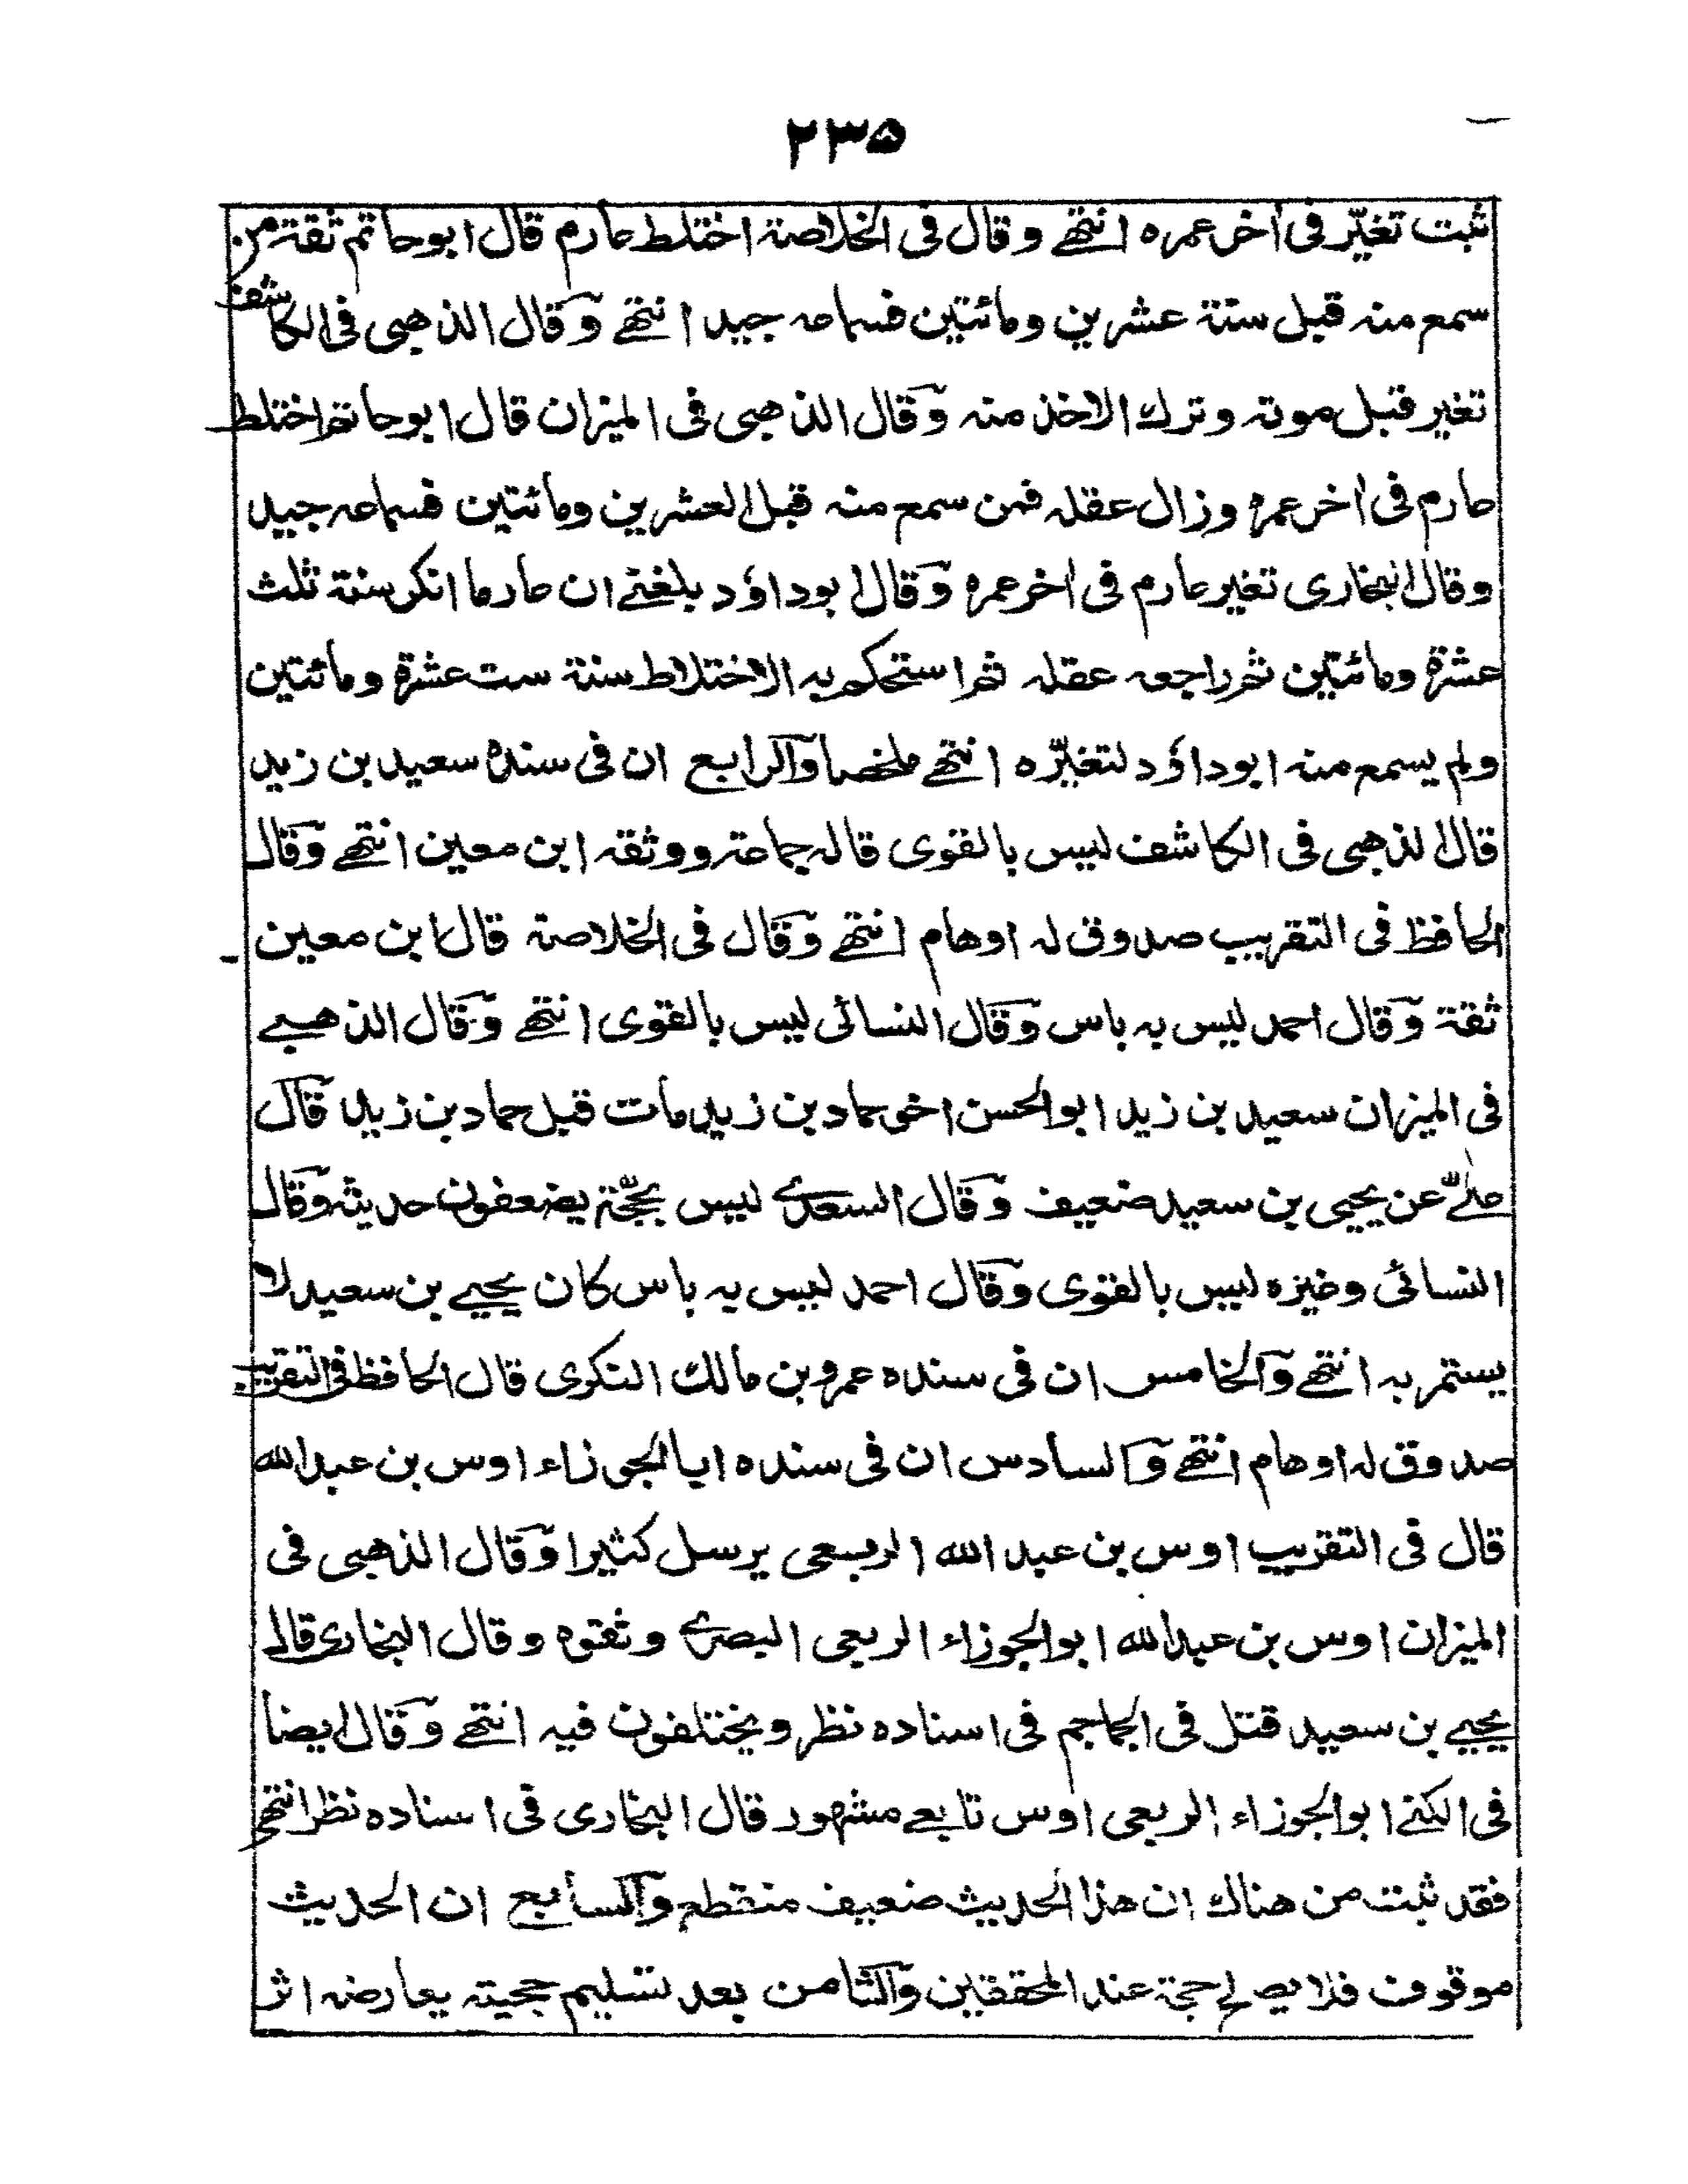 ٢٣٥
ثبت تغيّر فى اخر عمره انتهى وقال فى الخلاصة اختلط عارم قال ابو حاتم ثقة من
سمع منه قبل سنة عشرين ومائتين فسماعه جيد انتهى وقال الذهبى فى الكاشف
تغير قبل موته وترك الاخذ منه وقال الذهبى فى الميزان قال ابو حاتم اختلط
عارم فى اخر عمره وزال عقله فمن سمع منه قبل العشرين ومائتين فسماعه جيد
وقال البخارى تغير عارم فى اخر عمره وقال ابو داؤد بلغنى ان عارما انكر سنة ثلث
عشرة ومائتين ثم راجعه عقله ثم استحكم به الاختلاط سنة ست عشرة ومائتين
ولم يسمع منه ابو داؤد لتغيّره انتهى ملخصا والرابع ان فى سنده سعيد بن زيد
قال الذهبى فى الكاشف ليس بالقوى قاله جماعة ووثقه ابن معين انتهى وقال
الحافظ فى التقريب صدوق له اوهام انتهى وقال فى الخلاصة قال ابن معين
ثقة وقال احمد ليس به باس وقال النسائى ليس بالقوى انتهى وقال الذهبى
فى الميزان سعيد بن زيد ابو الحسن اخو حماد بن زيد مات قبل حماد بن زيد قال
علىّ عن يحيى بن سعيد ضعيف وقال السعدى ليس بحجّة يضعفون حديثه وقال
النسائى وغيره ليس بالقوى وقال احمد ليس به باس كان يحيى بن سعيد لا
يستمر به انتهى والخامس ان فى سنده عمرو بن مالك النكرى قال الحافظ فى التقريب
صدوق له اوهام انتهى والسادس ان فى سنده ابا الجوزاء اوس بن عبد الله
قال فى التقريب اوس بن عبد الله الربعى يرسل كثيرا وقال الذهبى فى
الميزان اوس بن عبد الله ابو الجوزاء الربعى البصرى وثقوه وقال البخارى قال
يحيى بن سعيد قتل فى الجماجم فى اسناده نظر ويختلفون فيه انتهى وقال ايضا
فى الكنى ابو الجوزاء الربعى اوس تابعى مشهور قال البخارى فى اسناده نظر انتهى
فقد ثبت من هناك ان هذا الحديث ضعيف منقطع والسابع ان الحديث
موقوف فلا يصلح حجة عند المحققين والثامن بعد تسليم حجيته يعارضه اثر